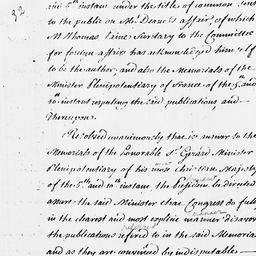 32
and 5th instant under the title of common sense
to the public on Mr. Deane's affair of which
Mr. Thomas Paine Secretary to the Committee
for foreign affairs has acknowledged himself
to be the author, and also the Memorials of the
Minister Plenipotentiary of France of the 5th and
10th instant respecting the said publications and
thereupon.
Resolved unanimously that in answer to the
Memorials of the honorable Sr. Gerard Minister
Plenipotentiary of his most Christian Majesty
of the 5th and 10th instant, the President be directed
assure the said Minister that Congress do fully
in the clearest and most explicit manner disavow
the publications refered to in the said Memorial
and as they are convinced by indisputable